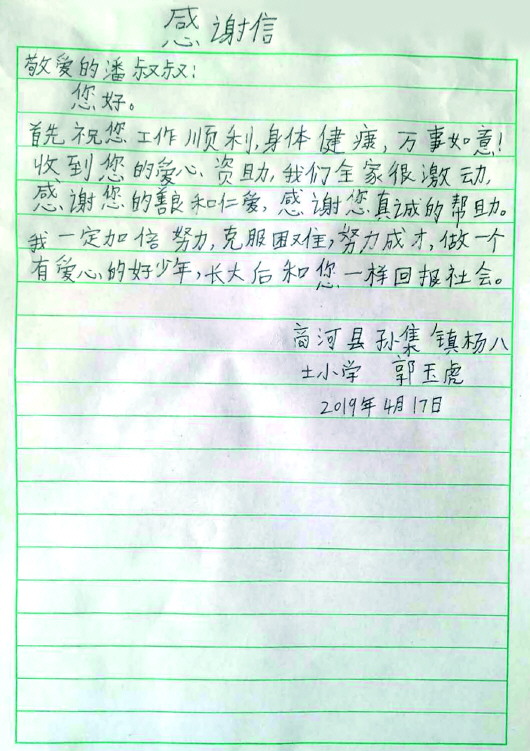 感谢信
敬爱的潘叔叔:
您好。
首先祝您工作顺利,身体健康,万事如意!
收到您的爱心资助,我们全家很激动,
感谢您的善良和仁爱,感谢您真诚的帮助。
我一定加信努力,克服困难,努力成才,做一个
有爱心的好少年,长大后和您一样回报社会。
商河县孙集镇杨八
土小学 郭玉虎
2019年4月17日